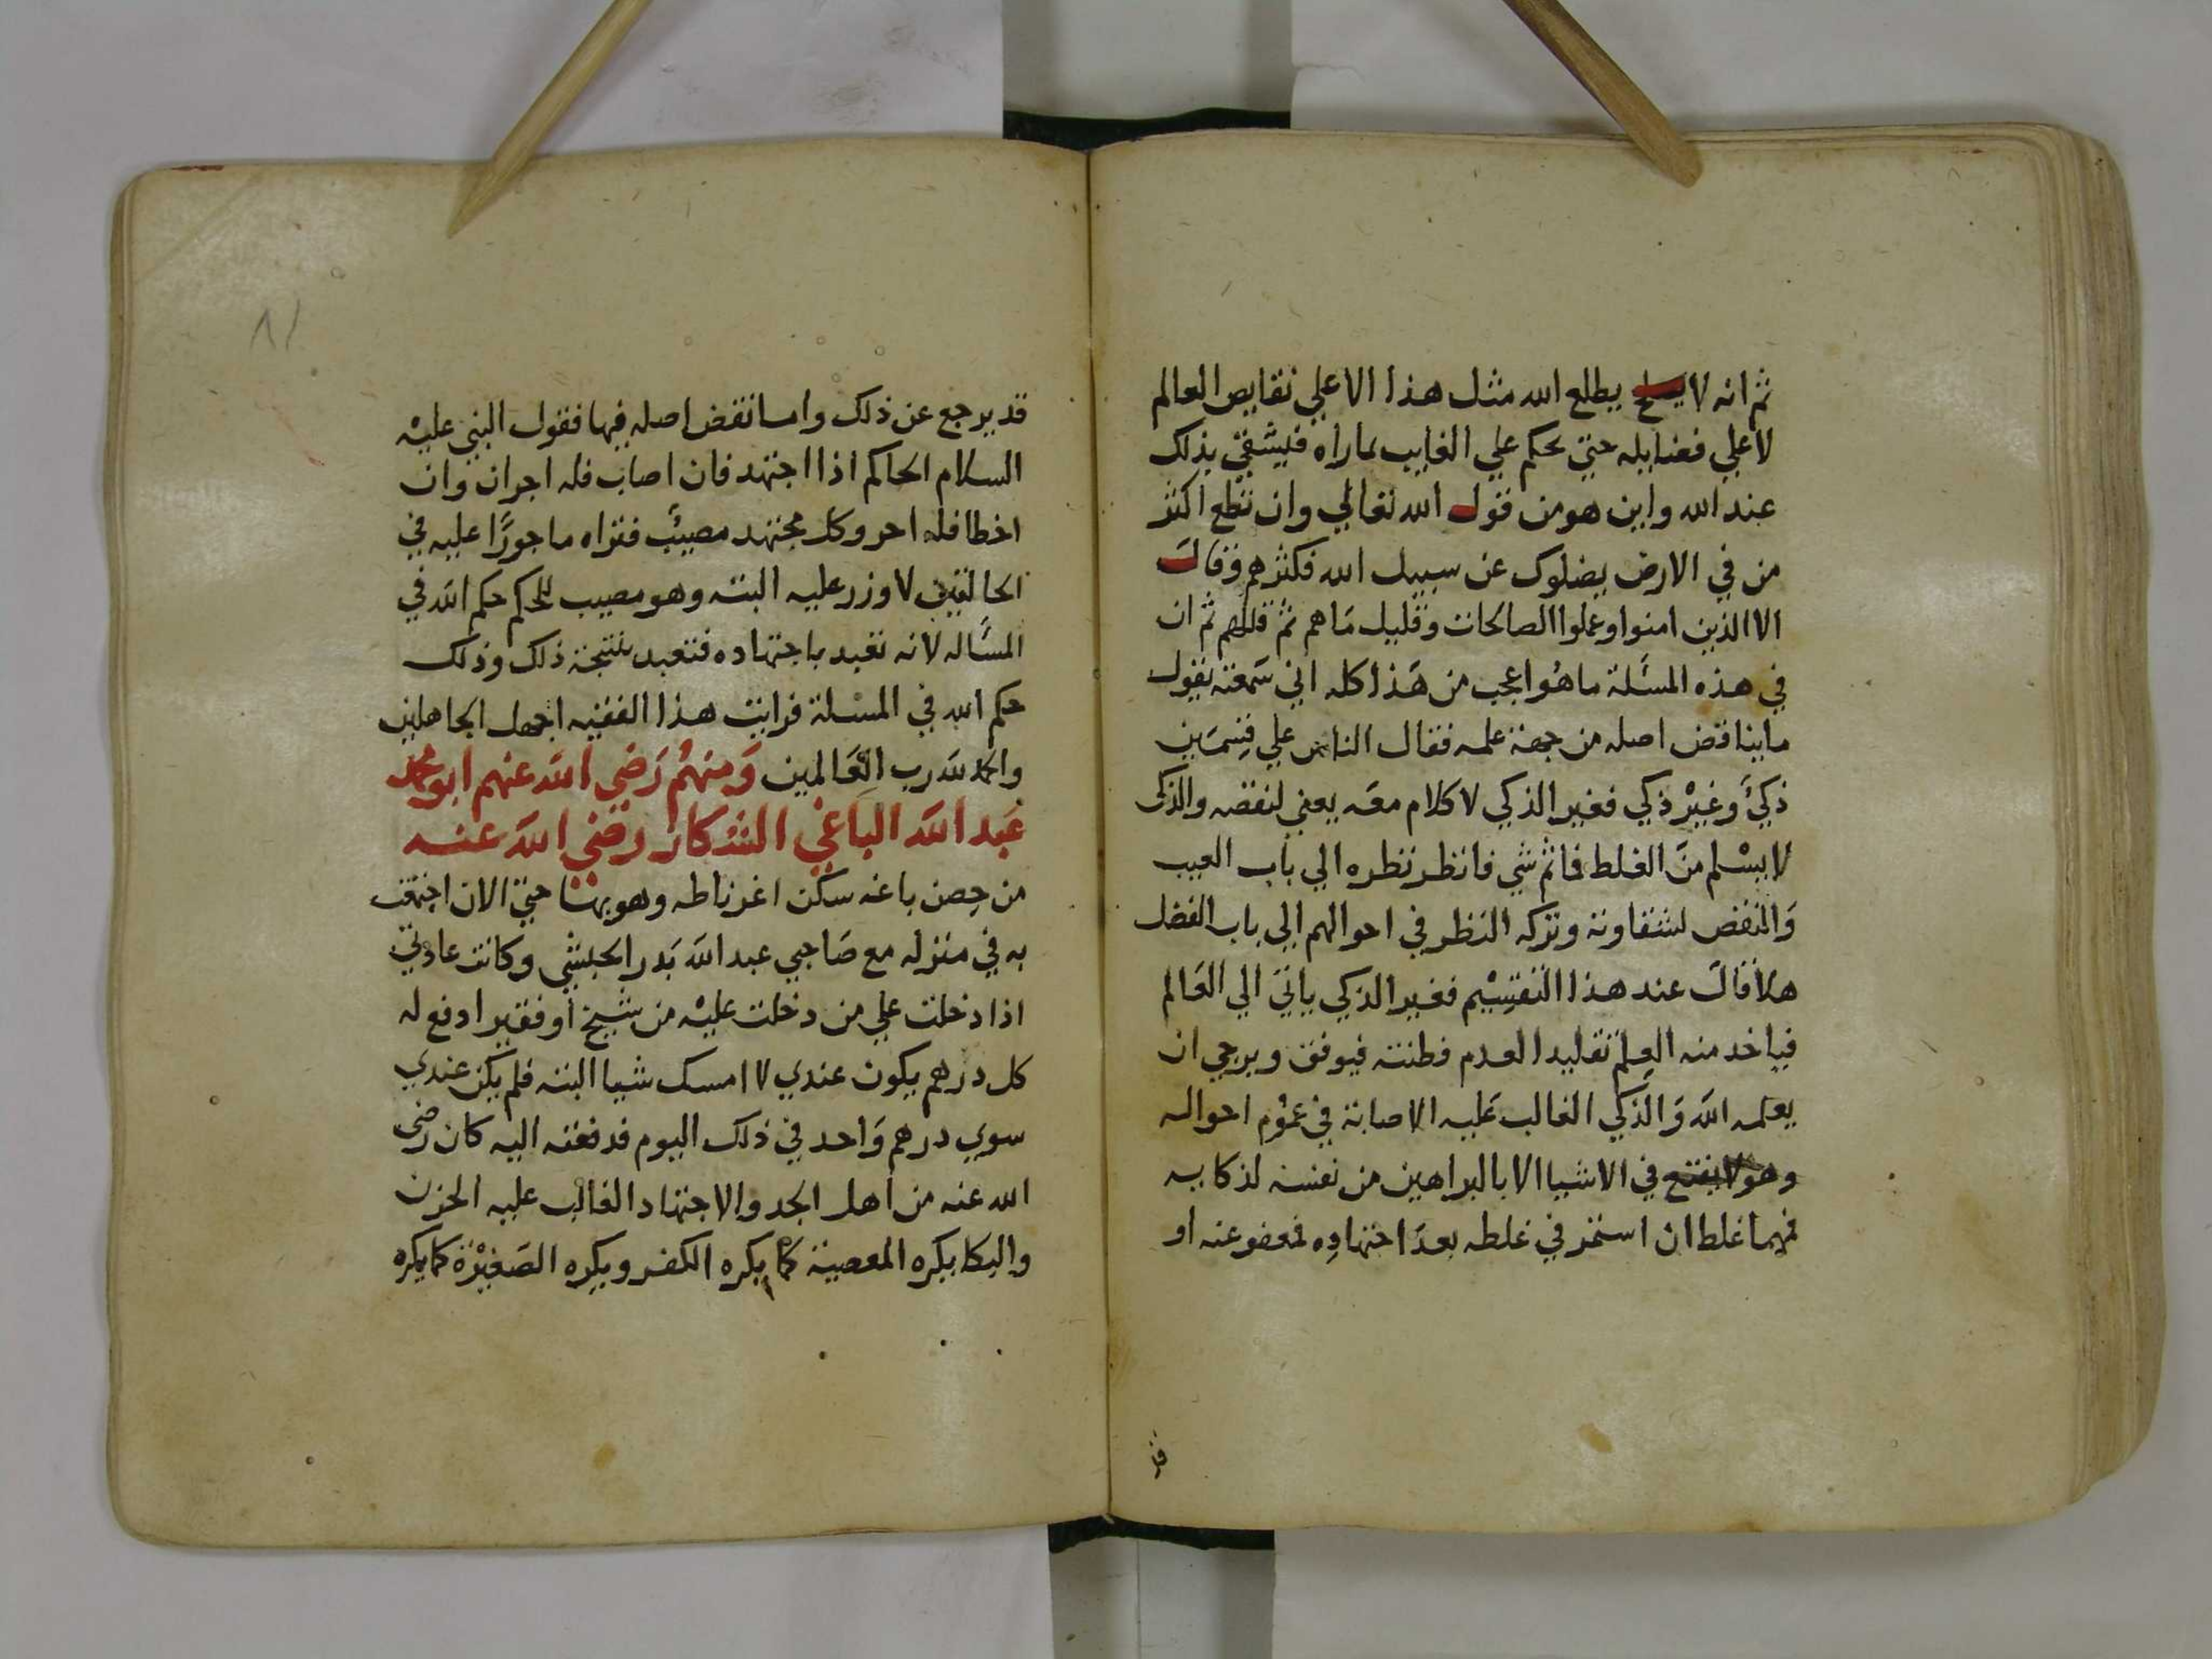 ثم انه لا يطلع الله مثل هذا الا علي نقايص العالم
لا علي فضايله حتي يحكم علي الغايب بما راه فيشقي بذلك
عند الله واين هو من قول الله تعالي وان تطع اكثر
من في الارض يضلوك عن سبيل الله فكثرهم وقال
الا الذين امنوا وعملوا الصالحات وقليل مَا هم ثم قللهم ثم ان
في هذه المسئلة ما هُو اعجب من هَذا كله اني سَمعته يقول
ما يناقض اصله من جهة علمه فقال الناس علي قِسمَين
ذكيّ وغيْر ذكي فغير الذكي لا كلام معَه يعني لنقصه والذكي
لا يسْلم منَ الغلط فما ثم شي فانظر نظره الي باب العيب
وَالنقص لشقاوته وتركه النظر في احوالهم الي باب الفضل
هلا قال عند هذا التقسِيْم فغير الذكي ياتيَ الي العَالم
فياخد منه العِلم تقليدا لعدم فطنته فيوفق ويرجي ان
يعلمه الله وَالذكي الغالب عَليه الاصابة في عمُوم احواله
وهو لا يقنع في الاشيا الا بالبراهين من نفسه لذكايه
فمهما غلط ان استمر في غلطه بعدَ اجتهادِه فمعفو عنه او
قد
٨١
قد يرجع عن ذلك واما نقض اصله فيها فقول النبي عليْه
السلام الحاكم اذا اجتهد فان اصاب فله اجران وان
اخطا فله اجر وكل مجتهد مصيبٌ فتراه ماجورًا عليه في
الحالتين لا وزر عليه البته وهو مصيب للحكم حكم الله في
المسّاله لانه تعبد باجتهاده فتعبد بنتيجة ذلك وذلك
حكم الله في المسْلة فرايت هذا الفقيه اجهل الجاهلين
والحمد لله رب العَالمين وَمنهُم رَضي الله عنهم ابو محمد
عَبد الله الباغي الشكاز رضي الله عنه
من حِصن باغه سكن اغرناطه وهو بها حتي الان اجتمعت
به في منزله مع صَاحبي عبد الله بَدر الحبشي وكانت عادتي
اذا دخلت علي من دخلت عليْه من شيخ أو فقير ادفع له
كل درهم يكون عندي لا امسك شيا البته فلم يكن عندي
سوي درهم وَاحد في ذلك اليوم فدفعته اليه كان رضي
الله عنه من أهل الجد والاجتهاد الغالب عليه الحزن
والبكا يكره المعصية كما يكره الكفر ويكره الصَغيْرة كما يكره